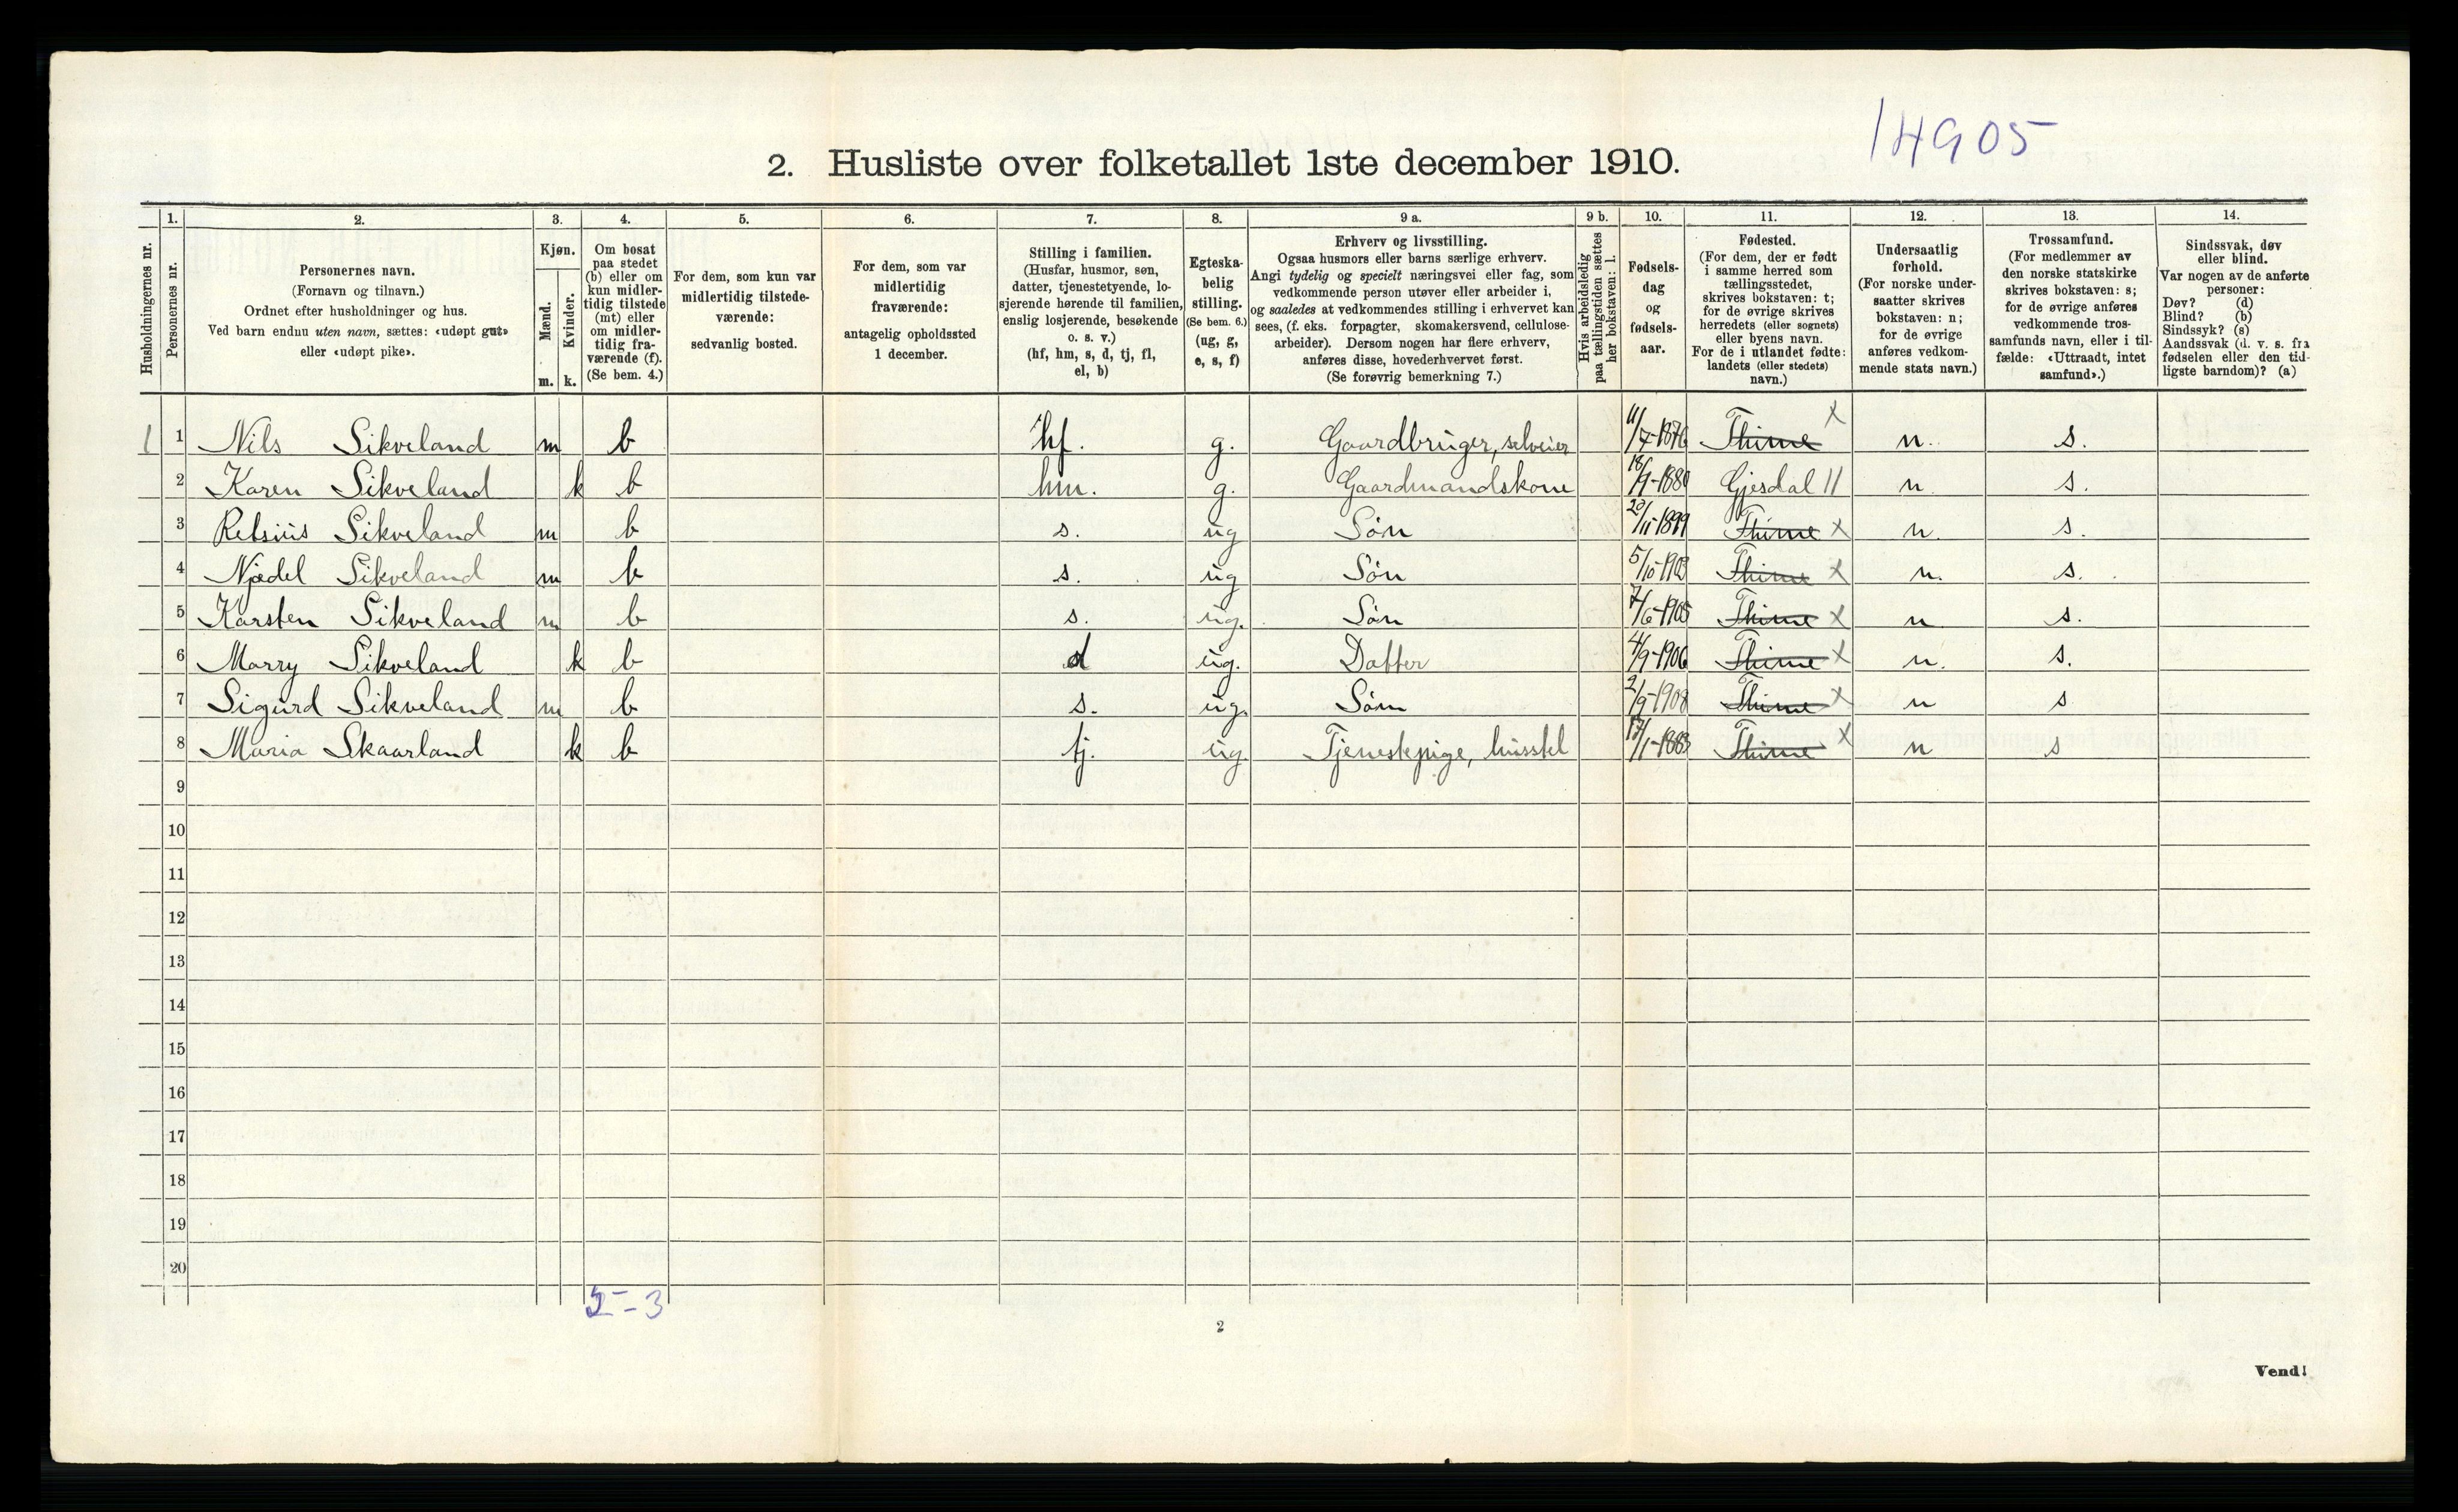 14905
2. Husliste over folketallet 1ste december 1910.
Husholdningernes nr.
1. Personernes nr.
2. Personernes navn. (Fornavn og tilnavn.) Ordnet efter husholdninger og hus. Ved barn endnu uten navn, sættes: «udøpt gut» eller «udøpt pike».
3. Kjøn. Mænd. m. Kvinder. k.
4. Om bosat paa stedet (b) eller om kun midler-tidig tilstede (mt) eller om midler-tidig fra-værende (f). (Se bem. 4.)
5. For dem, som kun var midlertidig tilstede-værende: sedvanlig bosted.
6. For dem, som var midlertidig fraværende: antagelig opholdssted 1 december.
7. Stilling i familien. (Husfar, husmor, søn, datter, tjenestetyende, lo-sjerende hørende til familien, enslig losjerende, besøkende o. s. v.) (hf, hm, s, d, tj, fl, el, b)
8. Egteska-belig stilling. (Se bem. 6.) (ug, g, e, s, f)
9 a. Erhverv og livsstilling. Ogsaa husmors eller barns særlige erhverv. Angi tydelig og specielt næringsvei eller fag, som vedkommende person utøver eller arbeider i, og saaledes at vedkommendes stilling i erhvervet kan sees, (f. eks. forpagter, skomakersvend, cellulose-arbeider). Dersom nogen har flere erhverv, anføres disse, hovederhvervet først. (Se forøvrig bemerkning 7.)
9 b. Hvis arbeidsledig paa tællingstiden sættes her bokstaven: l.
10. Fødsels-dag og fødsels-aar.
11. Fødested. (For dem, der er født i samme herred som tællingsstedet, skrives bokstaven: t; for de øvrige skrives herredets (eller sognets) eller byens navn. For de i utlandet fødte: landets (eller stedets) navn.)
12. Undersaatlig forhold. (For norske under-saatter skrives bokstaven: n; for de øvrige anføres vedkom-mende stats navn.)
13. Trossamfund. (For medlemmer av den norske statskirke skrives bokstaven: s; for de øvrige anføres vedkommende tros-samfunds navn, eller i til-fælde: «Uttraadt, intet samfund».)
14. Sindssvak, døv eller blind. Var nogen av de anførte personer: Døv? (d) Blind? (b) Sindssyk? (s) Aandssvak (d. v. s. fra fødselen eller den tid-ligste barndom)? (a)
1 1 Nils Sikveland m b hf. g. Gaardbruger, selveier 11/7-1876 Thime x n. s.
2 Karen Sikveland k b hm. g. Gaardmandskone 18/9-1880 Gjesdal 11 n. s.
3 Retsius Sikveland m b s. ug Søn 20/11-1899 Thime x n. s.
4 Njædel Sikveland m b s. ug Søn 5/10-1903 Thime x n. s.
5 Karsten Sikveland m b s. ug. Søn 7/6-1905 Thime x n s.
6 Marry Sikveland k b d ug. Datter 4/9-1906 Thime x n. s.
7 Sigurd Sikveland m b s. ug. Søn 2/9-1908 Thime x n s
8 Maria Skaarland k b tj. ug. Tjenestepige, husstel 17/1-1883 Thime x n s
9
10
11
12
13
14
15
16
17
18
19
20
5-3
2
Vend!